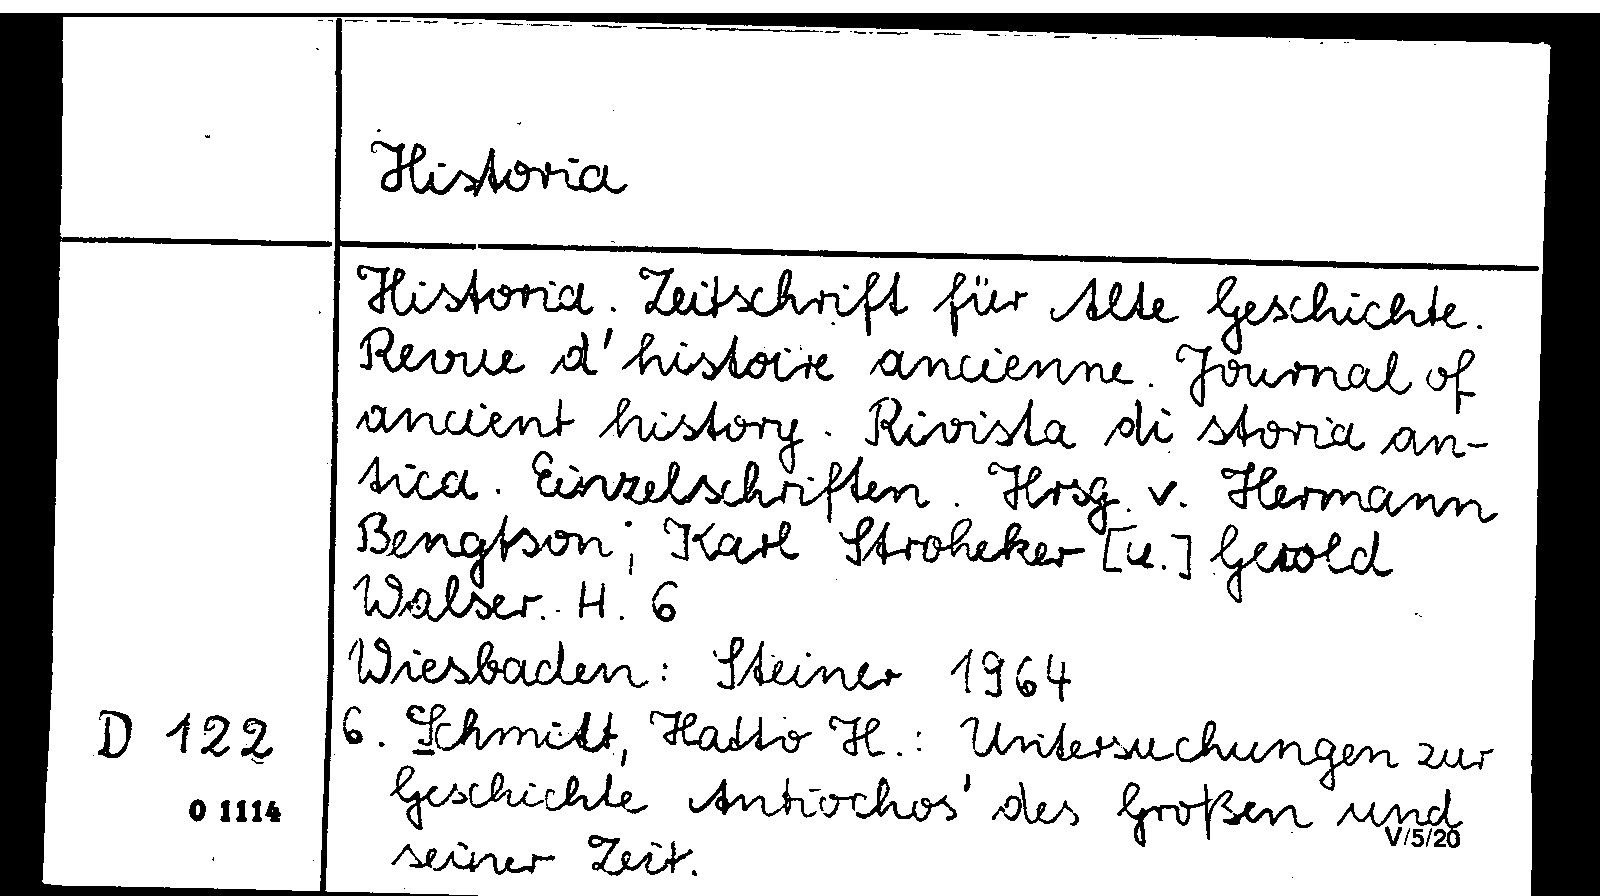 Historia
Historia. Zeitschrift für Alte Geschichte.
Revue d'histoire ancienne. Journal of
ancient history. Rivista di storia an-
tica. Einzelschriften. Hrsg. v. Hermann
Bengtson; Karl Stroheker [u.] Gerold
Walser. H. 6
Wiesbaden: Steiner 1964
D 122 6. Schmitt, Hatto H.: Untersuchungen zur
Geschichte Antiochos' des Großen und
O 1114
V/5/20
seiner Zeit.